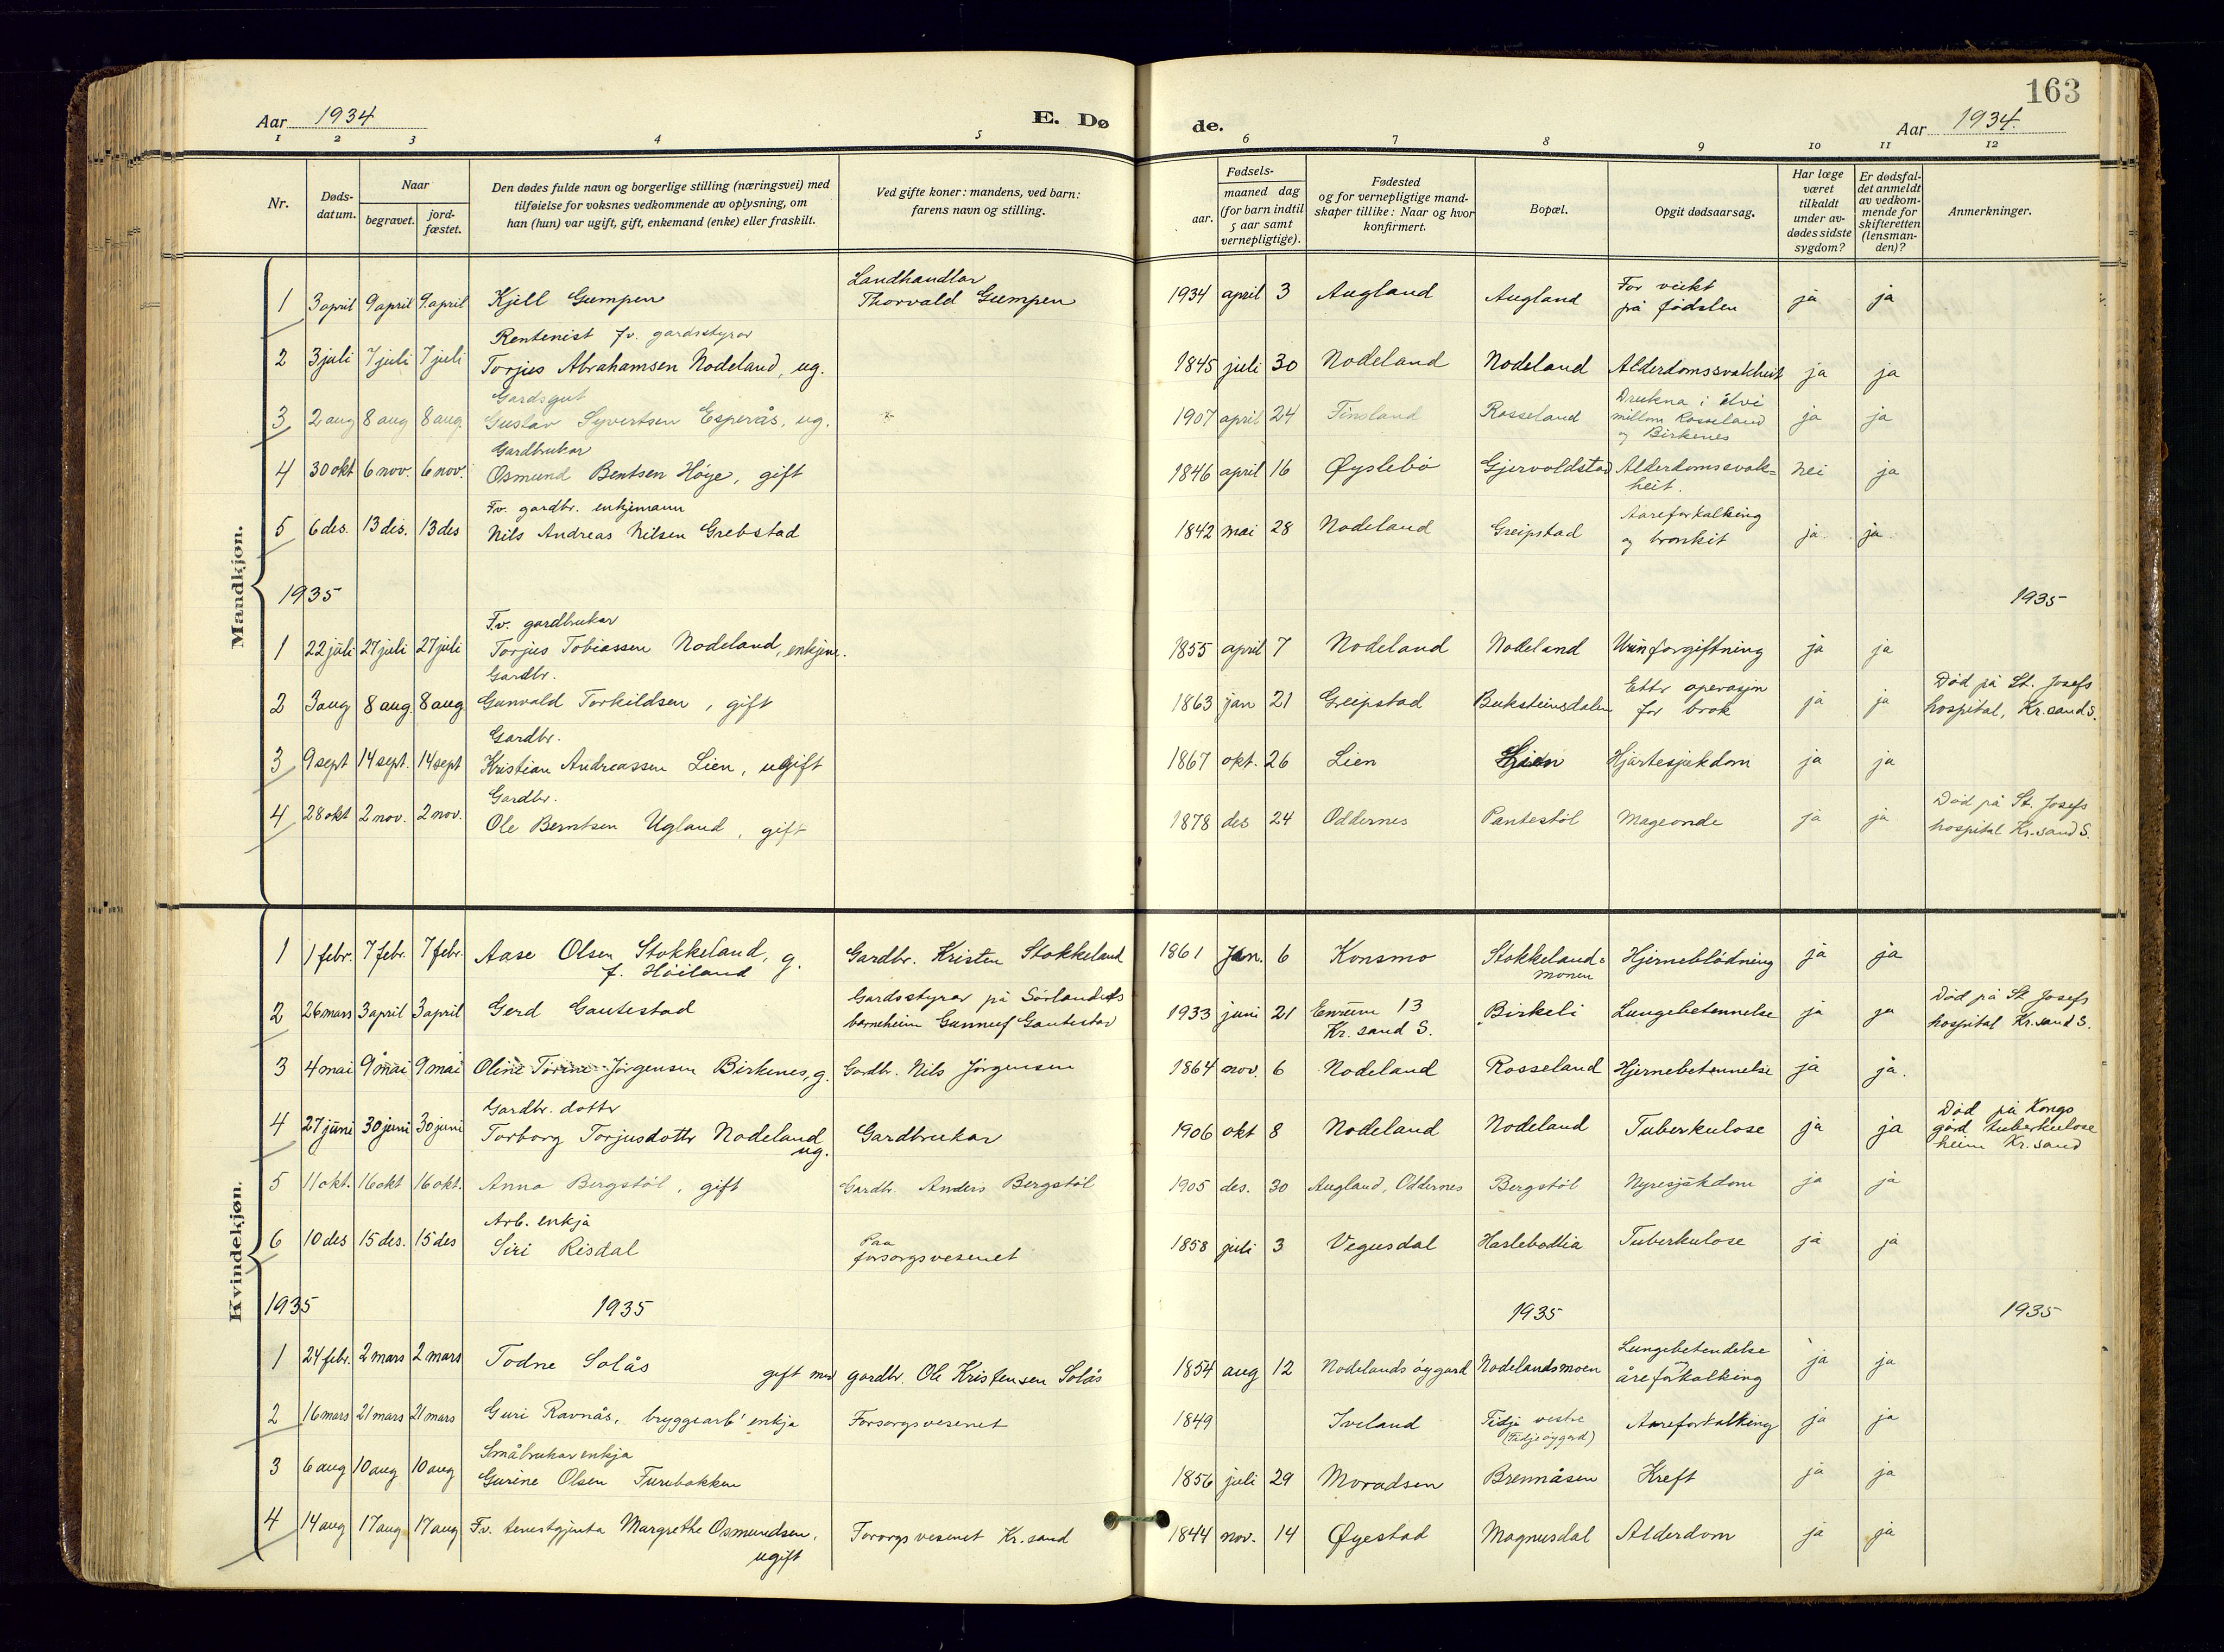 163
Aar 1934
E. Dø
de.
Aar 1934.
1 2 3 4 5 6 7 8 9 10 11 12
Nr.
Døds-
datum.
Naar
begravet.
jord-
fæstet.
Den dødes fulde navn og borgerlige stilling (næringsvei) med
tilføielse for voksnes vedkommende av oplysning, om
han (hun) var ugift, gift, enkemand (enke) eller fraskilt.
Ved gifte koner: mandens, ved barn:
farens navn og stilling.
Fødsels-
aar.
maaned dag
(for barn indtil
5 aar samt
vernepligtige).
Fødested
og for vernepligtige mand-
skaper tillike: Naar og hvor
konfirmert.
Bopæl.
Opgit dødsaarsag.
Har læge
været
tilkaldt
under av-
dødes sidste
sygdom?
Er dødsfal-
det anmeldt
av vedkom-
mende for
skifteretten
(lensman-
den)?
Anmerkninger.
Mandkjøn.
Landhandlar
1 3 april 9 april 9. april Kjell Gumpen Thorvald Gumpen 1934 april 3 Augland Augland For veikt
på fødslen ja ja
Rentenist fv. gardsstyrar
2 3 juli 7 juli 7 juli Torjus Abrahamsen Nodeland, ug. 1845 juli 30 Nodeland Nodeland Alderdomssvakheit ja ja
Gardsgut
3 2 aug 8 aug 8 aug. Gustav Syvertsen Esperås, ug. 1907 april 24 Finsland Rosseland Drukna i elvi
millom Rosseland
og Birkenes ja ja
Gardbrukar
4 30 okt 6 nov. 6 nov. Osmund Bentsen Høye, gift 1846 april 16 Øyslebø Gjervoldstad Alderdomssvak=
heit. nei ja
Fv. gardbr. enkjemann
5 6 des. 13 des. 13 des Nils Andreas Nilsen Grebstad 1842 mai 28 Nodeland Greipstad Aareforkalking
og bronkit ja ja.
1935 1935
Fv. gardbrukar
1 22 juli 27 juli 27 juli Torjus Tobiassen Nodeland, enkjem. 1855 april 7 Nodeland Nodeland Urinforgiftning ja ja
Gardbr.
2 3 aug 8 aug. 8 aug Gunvald Torkildsen, gift 1863 jan 21 Greipstad Buksteinsdalen Ettr operasjon
for brok ja ja Död på St. Josefs
hospital, Kr.sand S.
Gardbr.
3 9 sept 14 sept. 14 sept Kristian Andreassen Lien, ugift 1867 okt. 26 Lien Lien Hjartesjukdom ja ja
Gardbr.
4 28 okt 2 nov. 2 nov. Ole Berntsen Ugland, gift 1878 des 24 Oddernes Pantestöl Mageonde ja ja Död på St. Josefs
hospital Kr.sand S.
Kvindekjøn.
1 1 febr. 7 febr. 7 febr. Aase Olsen Stokkeland, g.
f. Höiland Gardbr. Kristen Stokkeland 1861 Jan. 6 Konsmo Stokkeland=
monen Hjerneblödning ja ja
2 26 mars 3 april 3 april Gerd Gautestad Gardsstyrar på Sörlandets
barneheim Gunnuf Gautestad 1933 juni 21 Enrum 13
Kr. sand S. Birkeli Lungebetennelse ja ja Död på St Josefs
hospital Kr.sand S.
3 4 mai 9 mai 9 mai Oline Torine Jörgensen Birkenes, g. Gardbr. Nils Jörgensen 1864 nov. 6 Nodeland Rosseland Hjernebetennelse ja ja.
Gardbr. dottr
4 27 juni 30 juni 30 juni Torborg Torjusdottr Nodeland
ug. Gardbrukar 1906 okt 8 Nodeland Nodeland Tuberkulose ja ja Död på Kongs
gård tuberkulose
heim Kr.sand
5 11 okt. 16 okt 16 okt. Anna Bergstöl, gift Gardbr. Anders Bergstöl 1905 des. 30 Augland, Oddernes Bergstöl Nyresjukdom ja ja
Arb. enkja
6 10 des 15 des. 15 des Siri Risdal Paa
forsorgsvesenet 1858 juli 3 Vegusdal Haslebodlia Tuberkulose ja ja
1935 1935 1935 1935
1 24 febr. 2 mars 2 mars Todne Solås gift med gardbr. Ole Kristensen Solås 1854 aug 12 Nodelands öygard Nodelandsmoen Lungebetendelse
åreforkalking ja ja
2 16 mars 21 mars 21 mars Guri Ravnås, bryggearb' enkja Forsorgsvesenet 1849 Iveland Tidje vestre
(Tidje öygard) Aareforkalking ja ja
Småbrukarenkja
3 6 aug 10 aug 10 aug Gurine Olsen Furubakken 1856 juli 29 Moradsen Brennåsen Kreft ja ja
4 14 aug 17 aug 17 aug Fv. tenestgjenta Margrethe Osmundsen,
ugift Forsorgsvesenet Kr.sand 1844 nov. 14 Øyestad Magnusdal Alderdom ja ja